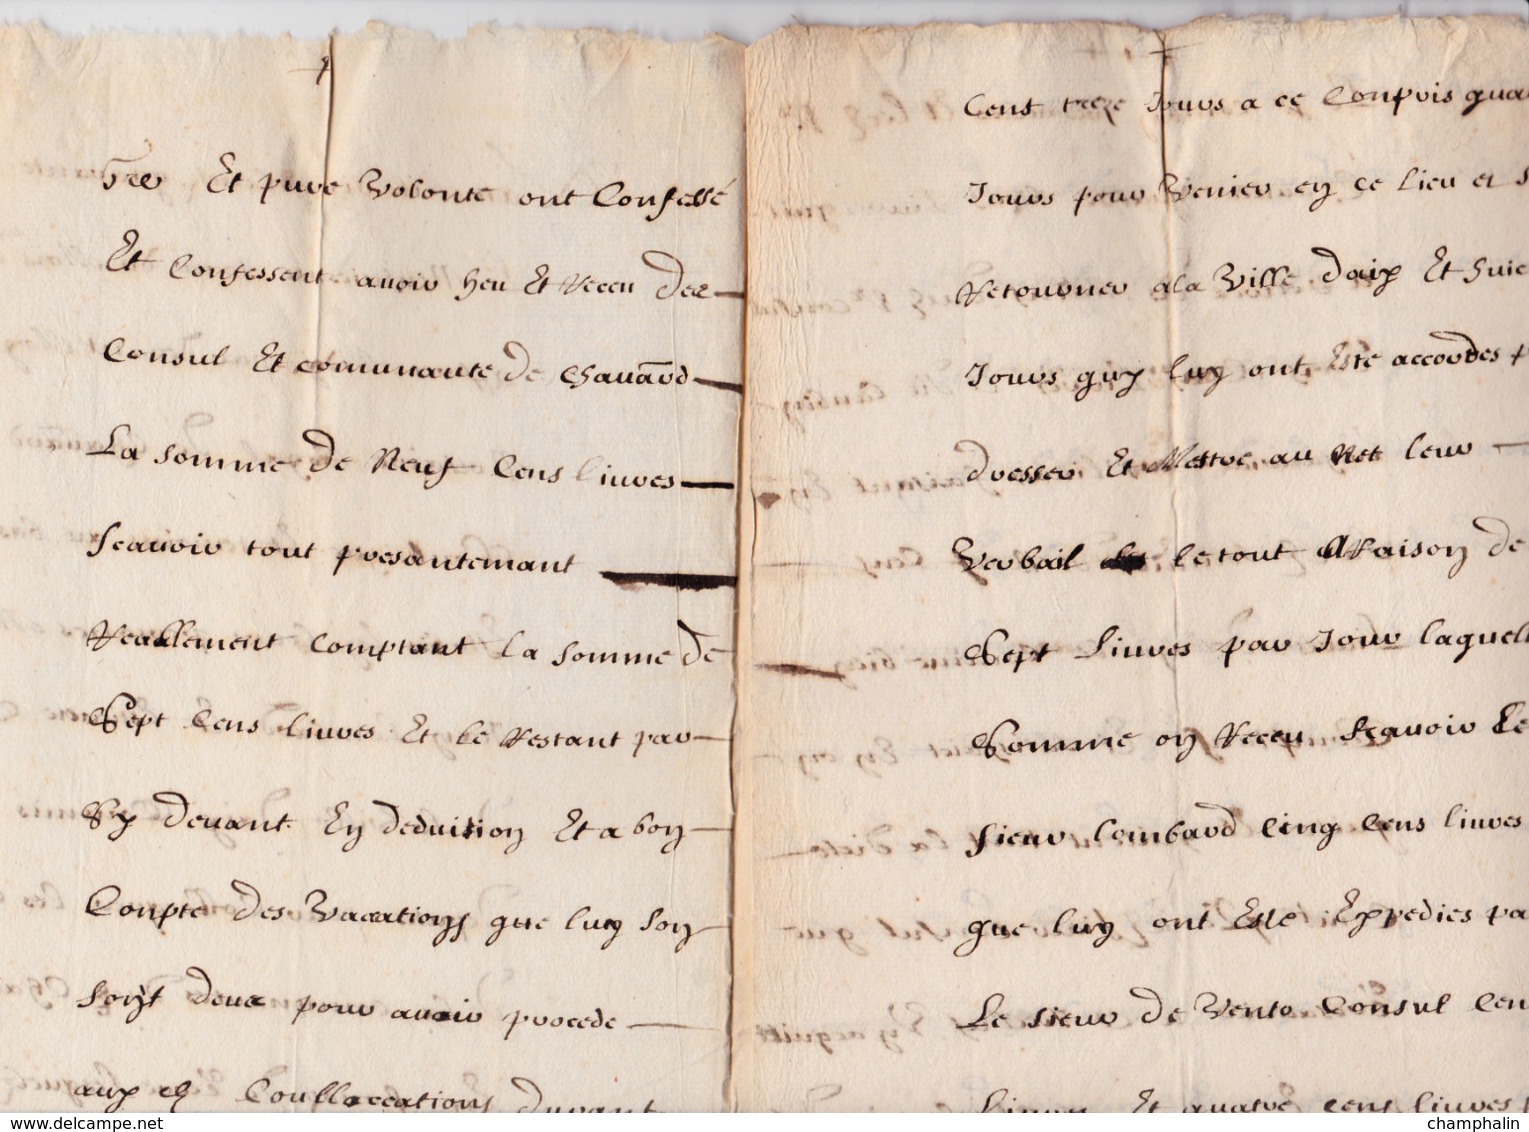 gre Et pure Volonte ont Confessé
Et Confessent avoir heu Et Receu des
Consul Et comunaute de Chavard
La somme de Neuf Cens liures
Scauoir tout presantemant
Reallement comptant La somme de
Sept Cens liures Et le Restant par
Cy deuant En deduision Et a bon
Conpte des Vacations que luy son
sont deue pour auoir procede
aux Coullaccations durant
Cent treze Jours a ce Conpris quat
Jours pour Venier en ce lieu et s
Retourner a la Ville daix Et huic
Jours quy luy ont Este accordes
dresser Et Mettre au Net leur
Verbail le tout A Raison de
Sept Liures par Jour laquell
Somme on Receu Scauoir Le
sieur lombard Cinq Cens liures
que luy ont Este Expedies pa
Le sieur de Vento Consul Cen
Liures Et quatre cens liures
www.delcampe.net
champhalin